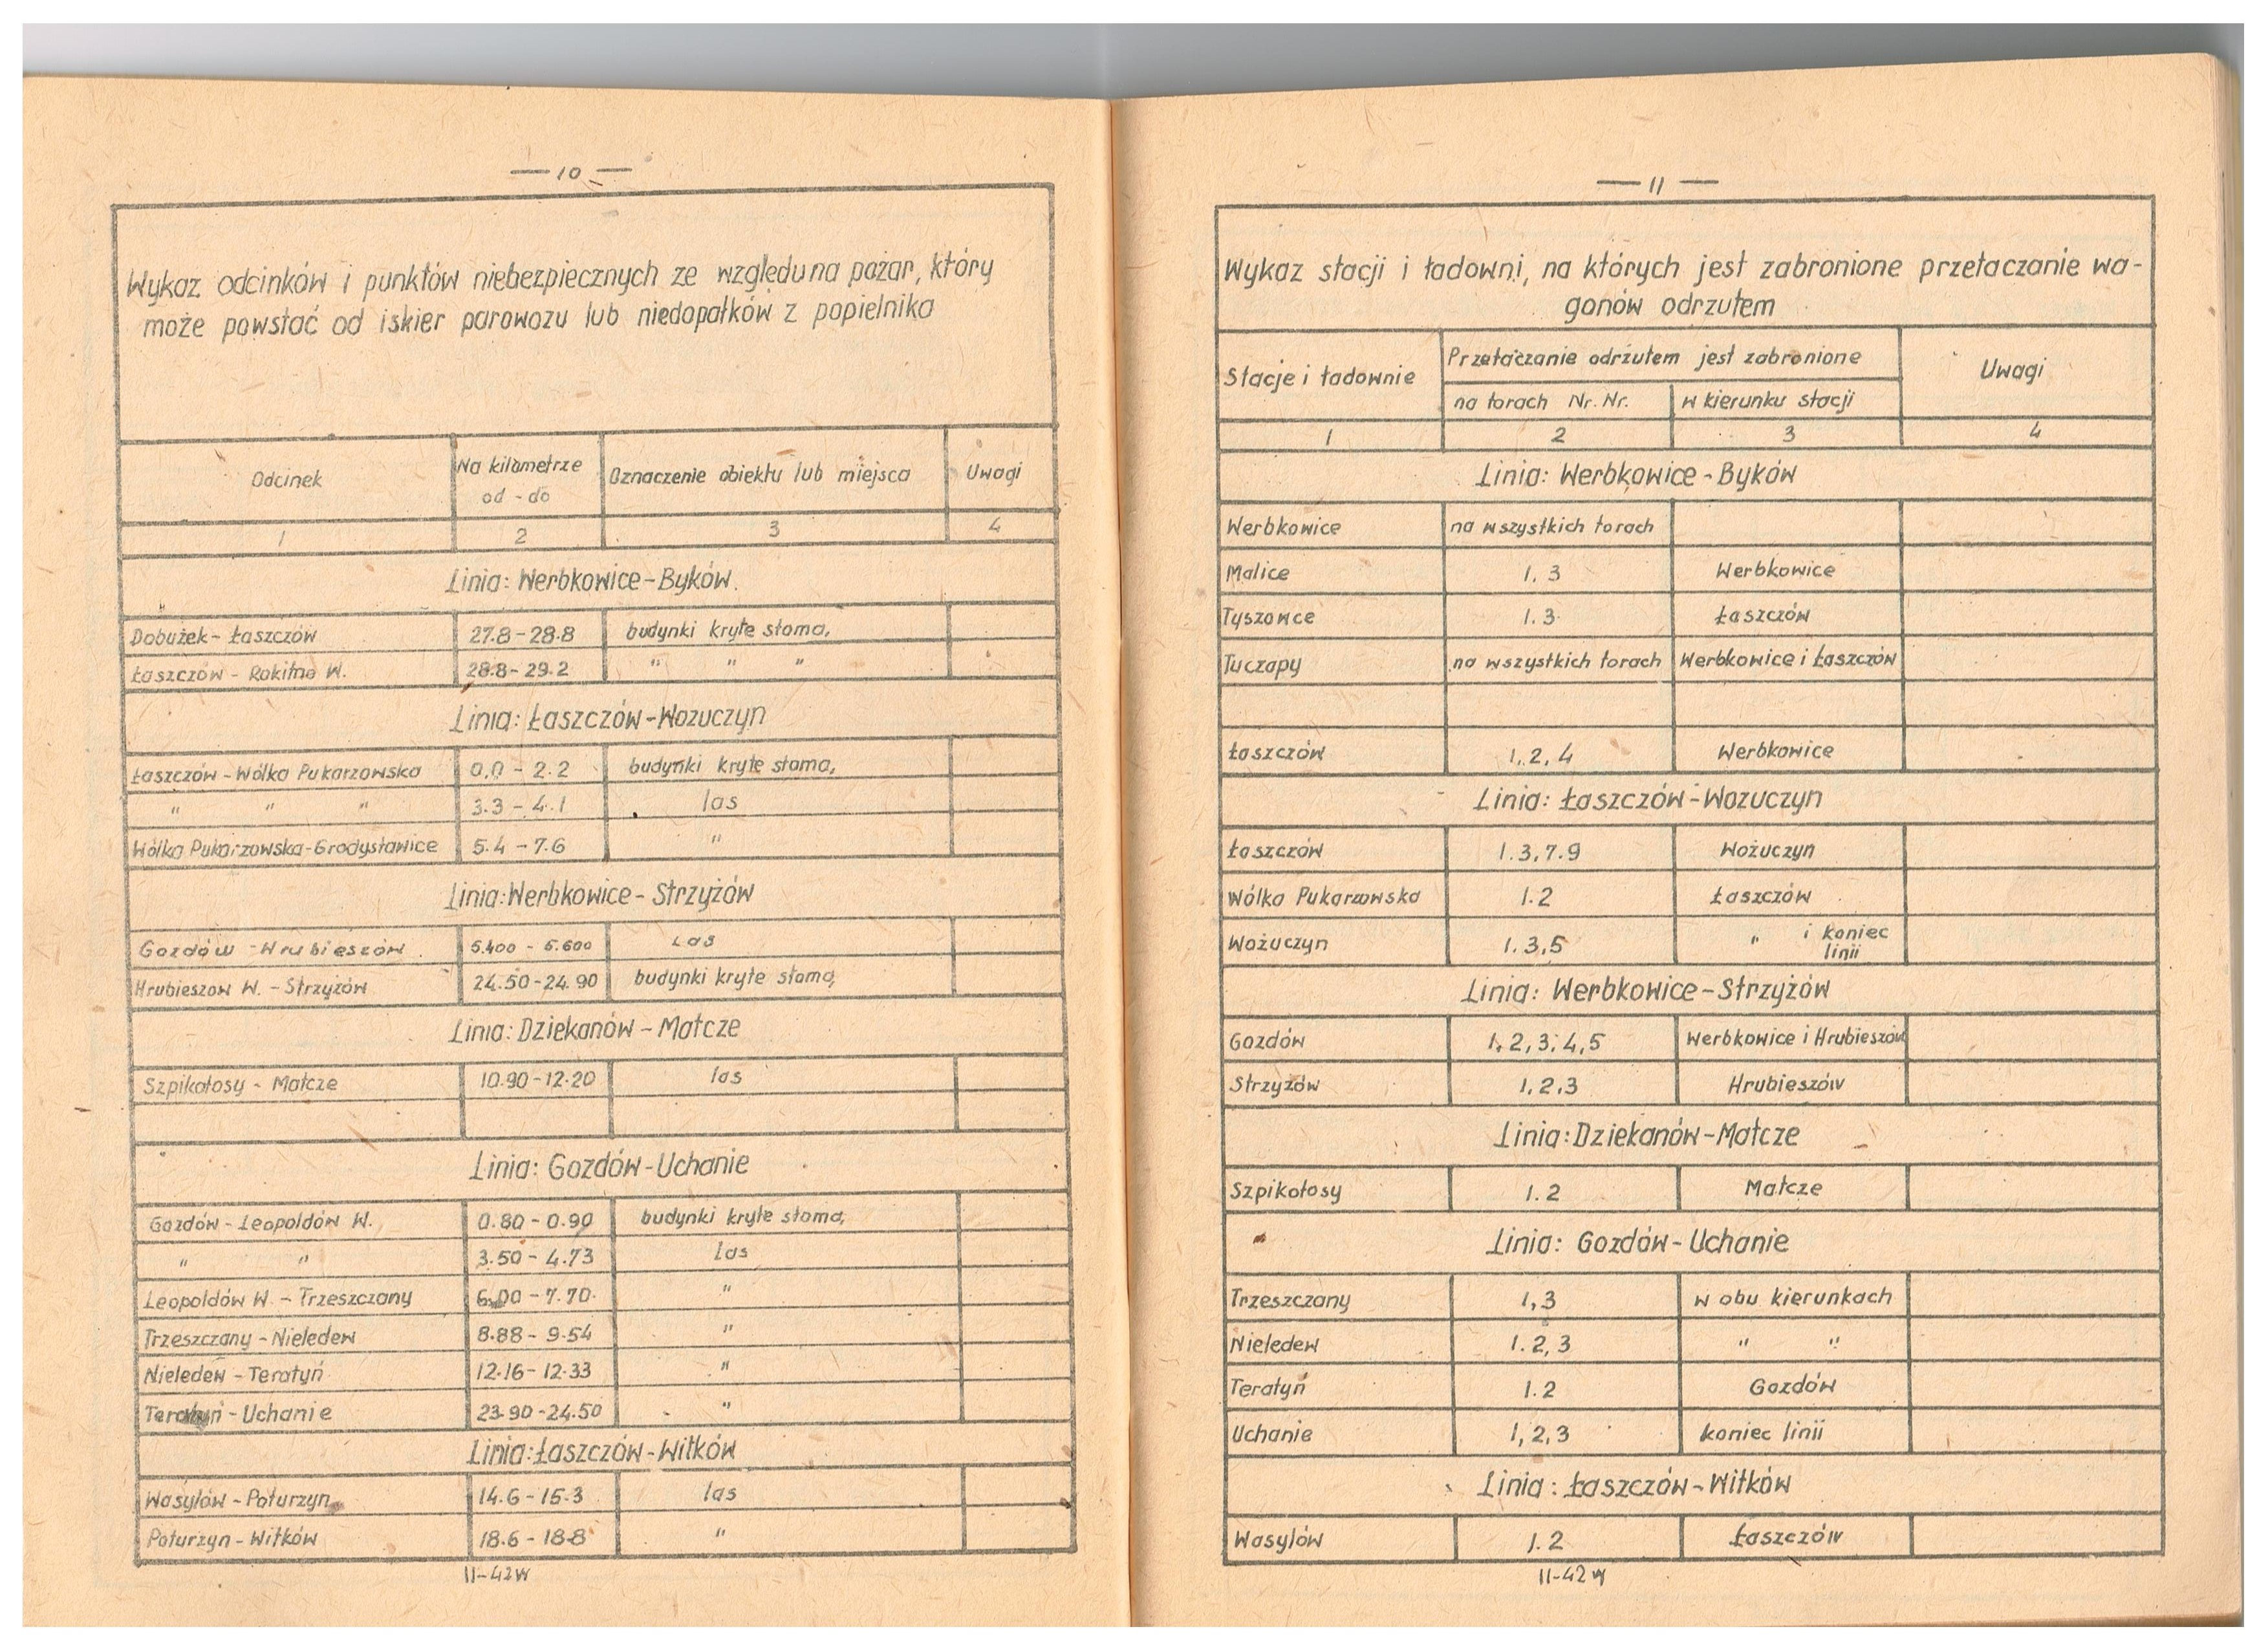 — 10 —
Wykaz odcinków i punktów niebezpiecznych ze względu na pożar, który
może powstać od iskier parowozu lub niedopałków z popielnika
Odcinek Na kilometrze od - do Oznaczenie obiektu lub miejsca Uwagi
1 2 3 4
Linia: Werbkowice - Byków.
Dobużek - Łaszczów 27.8 - 28.8 budynki kryte słomą,
Łaszczów - Rokitno W. 28.8 - 29.2 " " "
Linia: Łaszczów - Wożuczyn
Łaszczów - Wólka Pukarzowska 0.0 - 2.2 budynki kryte słomą,
" " " 3.3 - 4.1 las
Wólka Pukarzowska - Grodysławice 5.4 - 7.6 "
Linia: Werbkowice - Strzyżów
Gozdów - Hrubieszów 5.400 - 5.600 Las
Hrubieszów W. - Strzyżów 24.50 - 24.90 budynki kryte słomą,
Linia: Dziekanów - Matcze
Szpikołosy - Matcze 10.90 - 12.20 las
Linia: Gozdów - Uchanie
Gozdów - Leopoldów W. 0.80 - 0.90 budynki kryte słomą,
" " 3.50 - 4.73 las
Leopoldów W. - Trzeszczany 6.00 - 7.70 "
Trzeszczany - Nieledew 8.88 - 9.54 "
Nieledew - Teratyń 12.16 - 12.33 "
Teratyń - Uchanie 23.90 - 24.50 "
Linia: Łaszczów - Witków
Wasylów - Poturzyn 14.6 - 15.3 las
Poturzyn - Witków 18.6 - 18.8 "
II-42W
— 11 —
Wykaz stacji i ładowni, na których jest zabronione przetaczanie wa-
gonów odrzutem
Stacje i ładownie Przetaczanie odrzutem jest zabronione Uwagi
na torach Nr. Nr. w kierunku stacji
1 2 3 4
Linia: Werbkowice - Byków
Werbkowice na wszystkich torach
Malice 1. 3 Werbkowice
Tyszowce 1. 3. Łaszczów
Tuczapy na wszystkich torach Werbkowice i Łaszczów
Łaszczów 1, 2, 4 Werbkowice
Linia: Łaszczów - Wożuczyn
Łaszczów 1. 3, 7. 9 Wożuczyn
Wólka Pukarzowska 1. 2 Łaszczów
Wożuczyn 1. 3, 5 " i koniec
linii
Linia: Werbkowice - Strzyżów
Gozdów 1, 2, 3, 4, 5 Werbkowice i Hrubieszów
Strzyżów 1, 2, 3 Hrubieszów
Linia: Dziekanów - Matcze
Szpikołosy 1. 2 Matcze
Linia: Gozdów - Uchanie
Trzeszczany 1, 3 w obu kierunkach
Nieledew 1. 2, 3 " "
Teratyń 1. 2 Gozdów
Uchanie 1, 2, 3 koniec linii
Linia: Łaszczów - Witków
Wasylów 1. 2 Łaszczów
II-42W